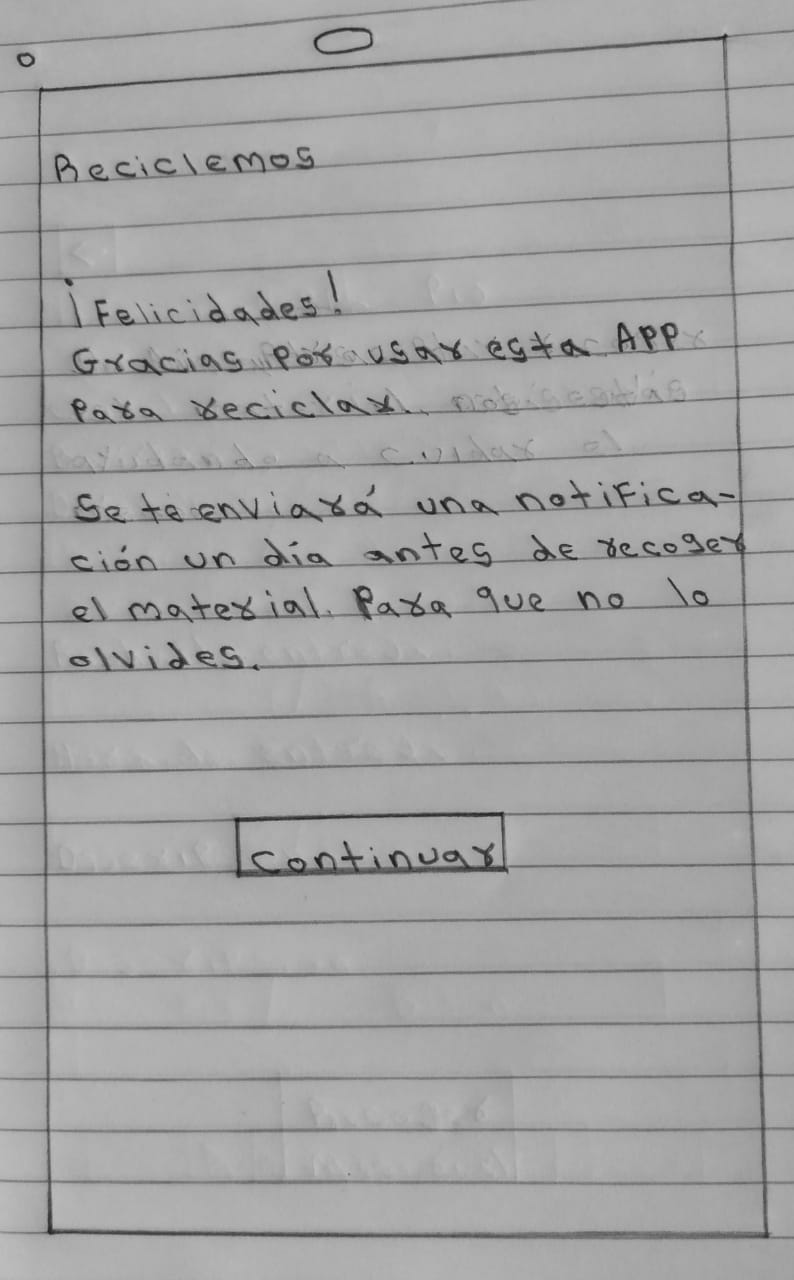 Reciclemos
¡Felicidades!
Gracias por usar esta APP
para reciclar.
Se te enviará una notifica-
ción un día antes de recoger
el material. Para que no lo
olvides.
continuar